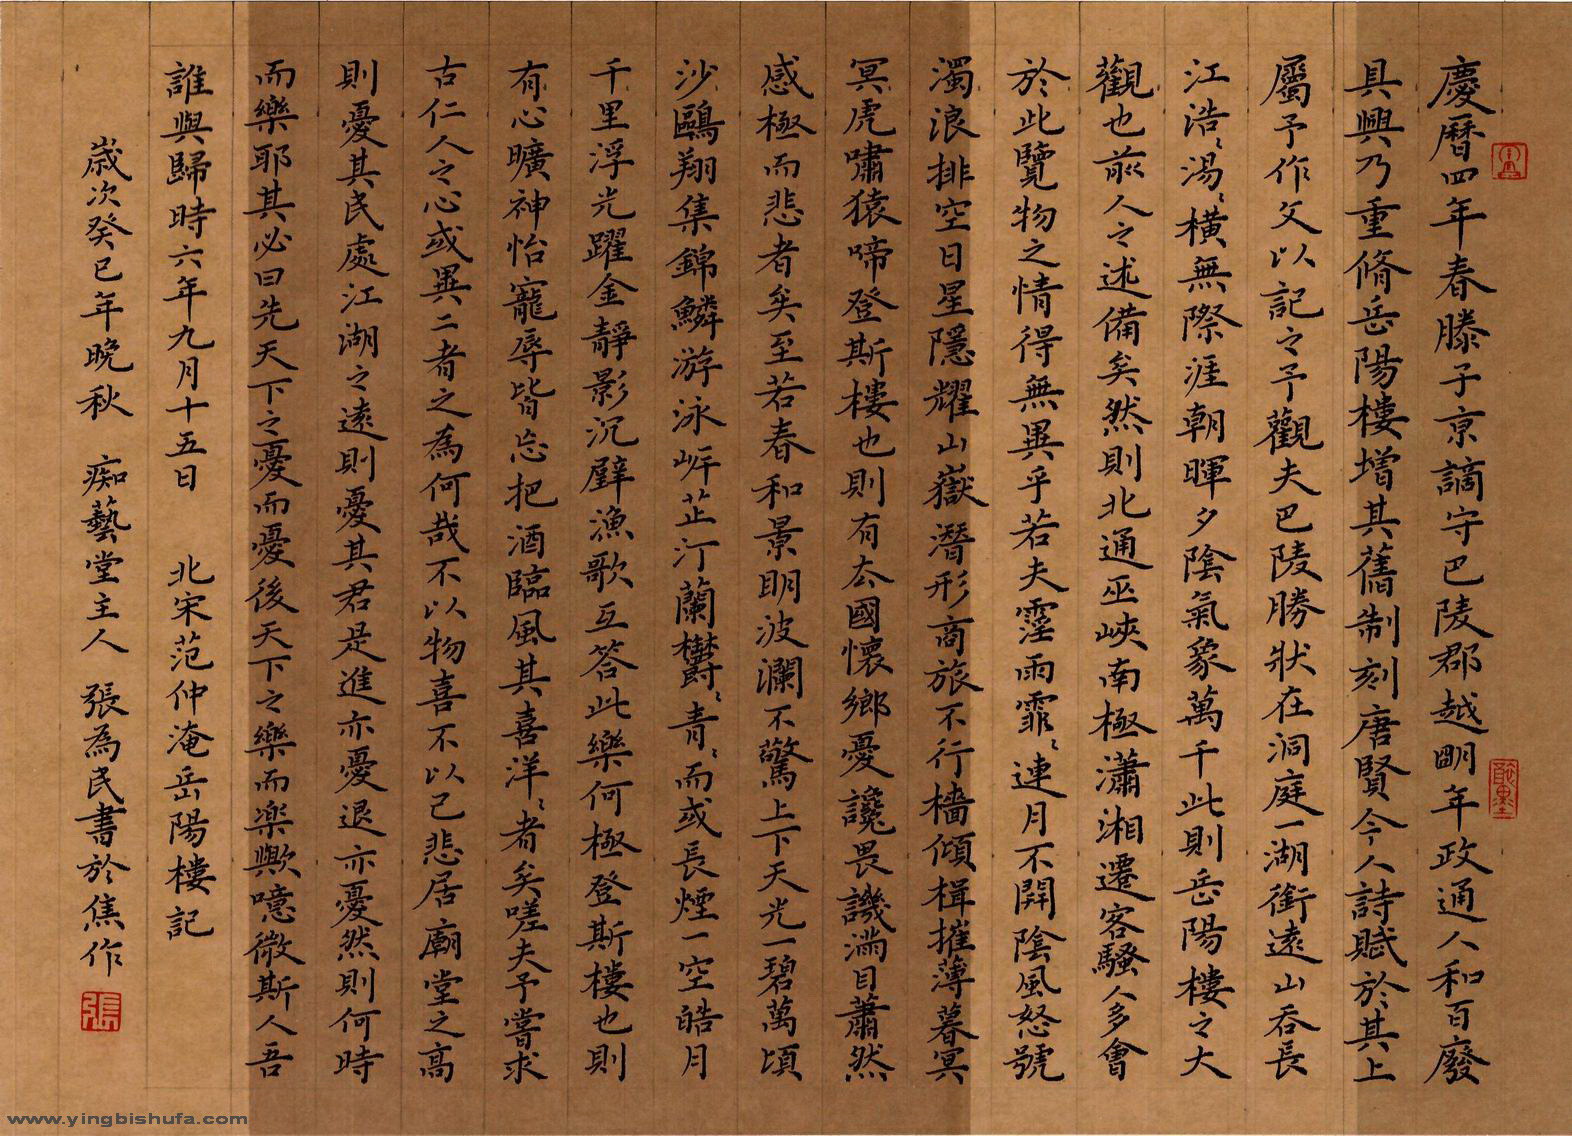 慶曆四年春滕子京謫守巴陵郡越明年政通人和百廢
具興乃重脩岳陽樓增其舊制刻唐賢今人詩賦於其上
屬予作文以記之予觀夫巴陵勝狀在洞庭一湖銜遠山吞長
江浩〻湯〻橫無際涯朝暉夕陰氣象萬千此則岳陽樓之大
觀也前人之述備矣然則北通巫峽南極瀟湘遷客騷人多會
於此覽物之情得無異乎若夫霪雨霏〻連月不開陰風怒號
濁浪排空日星隱耀山嶽潛形商旅不行檣傾楫摧薄暮冥
冥虎嘯猿啼登斯樓也則有去國懷鄉憂讒畏譏滿目蕭然
感極而悲者矣至若春和景明波瀾不驚上下天光一碧萬頃
沙鷗翔集錦鱗游泳岸芷汀蘭欝〻青〻而或長煙一空皓月
千里浮光躍金靜影沉璧漁歌互答此樂何極登斯樓也則
有心曠神怡寵辱皆忘把酒臨風其喜洋〻者矣嗟夫予嘗求
古仁人之心或異二者之為何哉不以物喜不以己悲居廟堂之高
則憂其民處江湖之遠則憂其君是進亦憂退亦憂然則何時
而樂耶其必曰先天下之憂而憂後天下之樂而楽歟噫微斯人吾
誰與歸時六年九月十五日 北宋范仲淹岳陽樓記
歲次癸巳年晚秋 痴藝堂主人 張為民書於焦作
張
www.yingbishufa.com